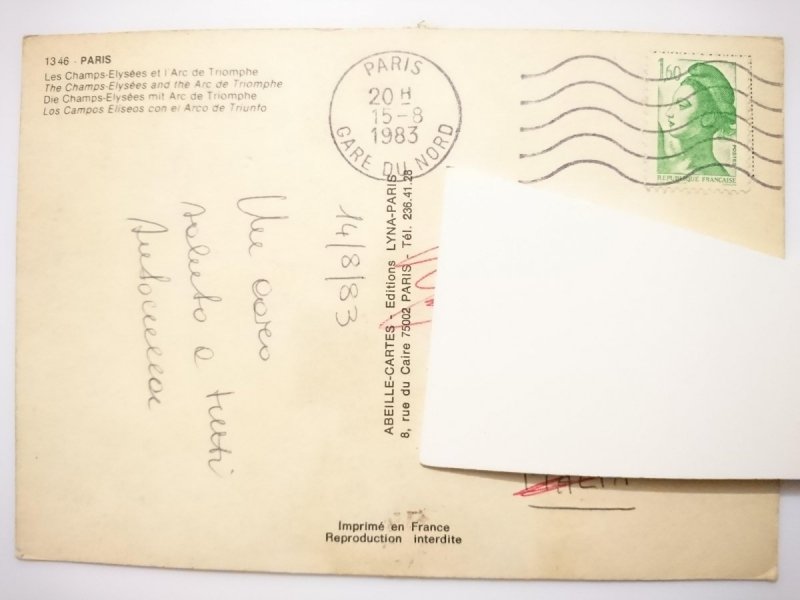 1346 - PARIS
Les Champs-Elysées et l'Arc de Triomphe
The Champs-Elysées and the Arc de Triomphe
Die Champs-Elysées mit Arc de Triomphe
Los Campos Eliseos con el Arco de Triunfo
PARIS
20 H
15-8
1983
GARE DU NORD
1,60
POSTES
REPUBLIQUE FRANÇAISE
14/8/83
Un caro
saluto a tutti
ABEILLE-CARTES - Editions LYNA-PARIS
8, rue du Caire 75002 PARIS - Tél. 236.41.28
Imprimé en France
Reproduction interdite